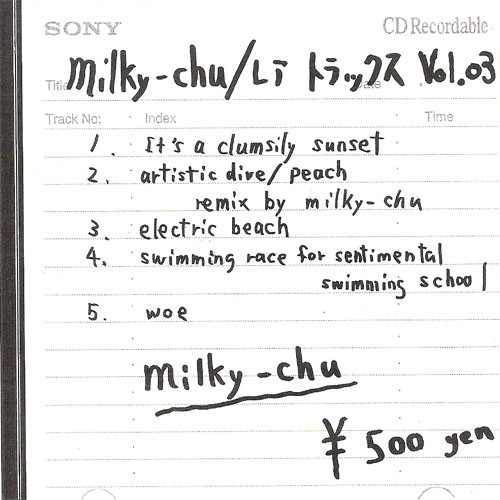 SONY
CD Recordable
milky-chu/LT トラックス Vol.03
Title
Track No: Index Time
1. It's a clumsily sunset
2. artistic dive/peach
remix by milky-chu
3. electric beach
4. swimming race for sentimental
swimming school
5. woe
milky-chu
¥ 500 yen